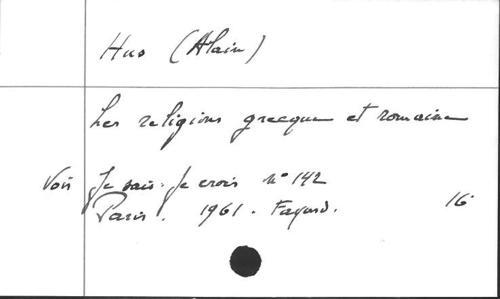 Hus (Alain)
Les religions grecque et romaine
Voir Je sais. Je crois N° 142
Paris. 1961. Fayard. 16